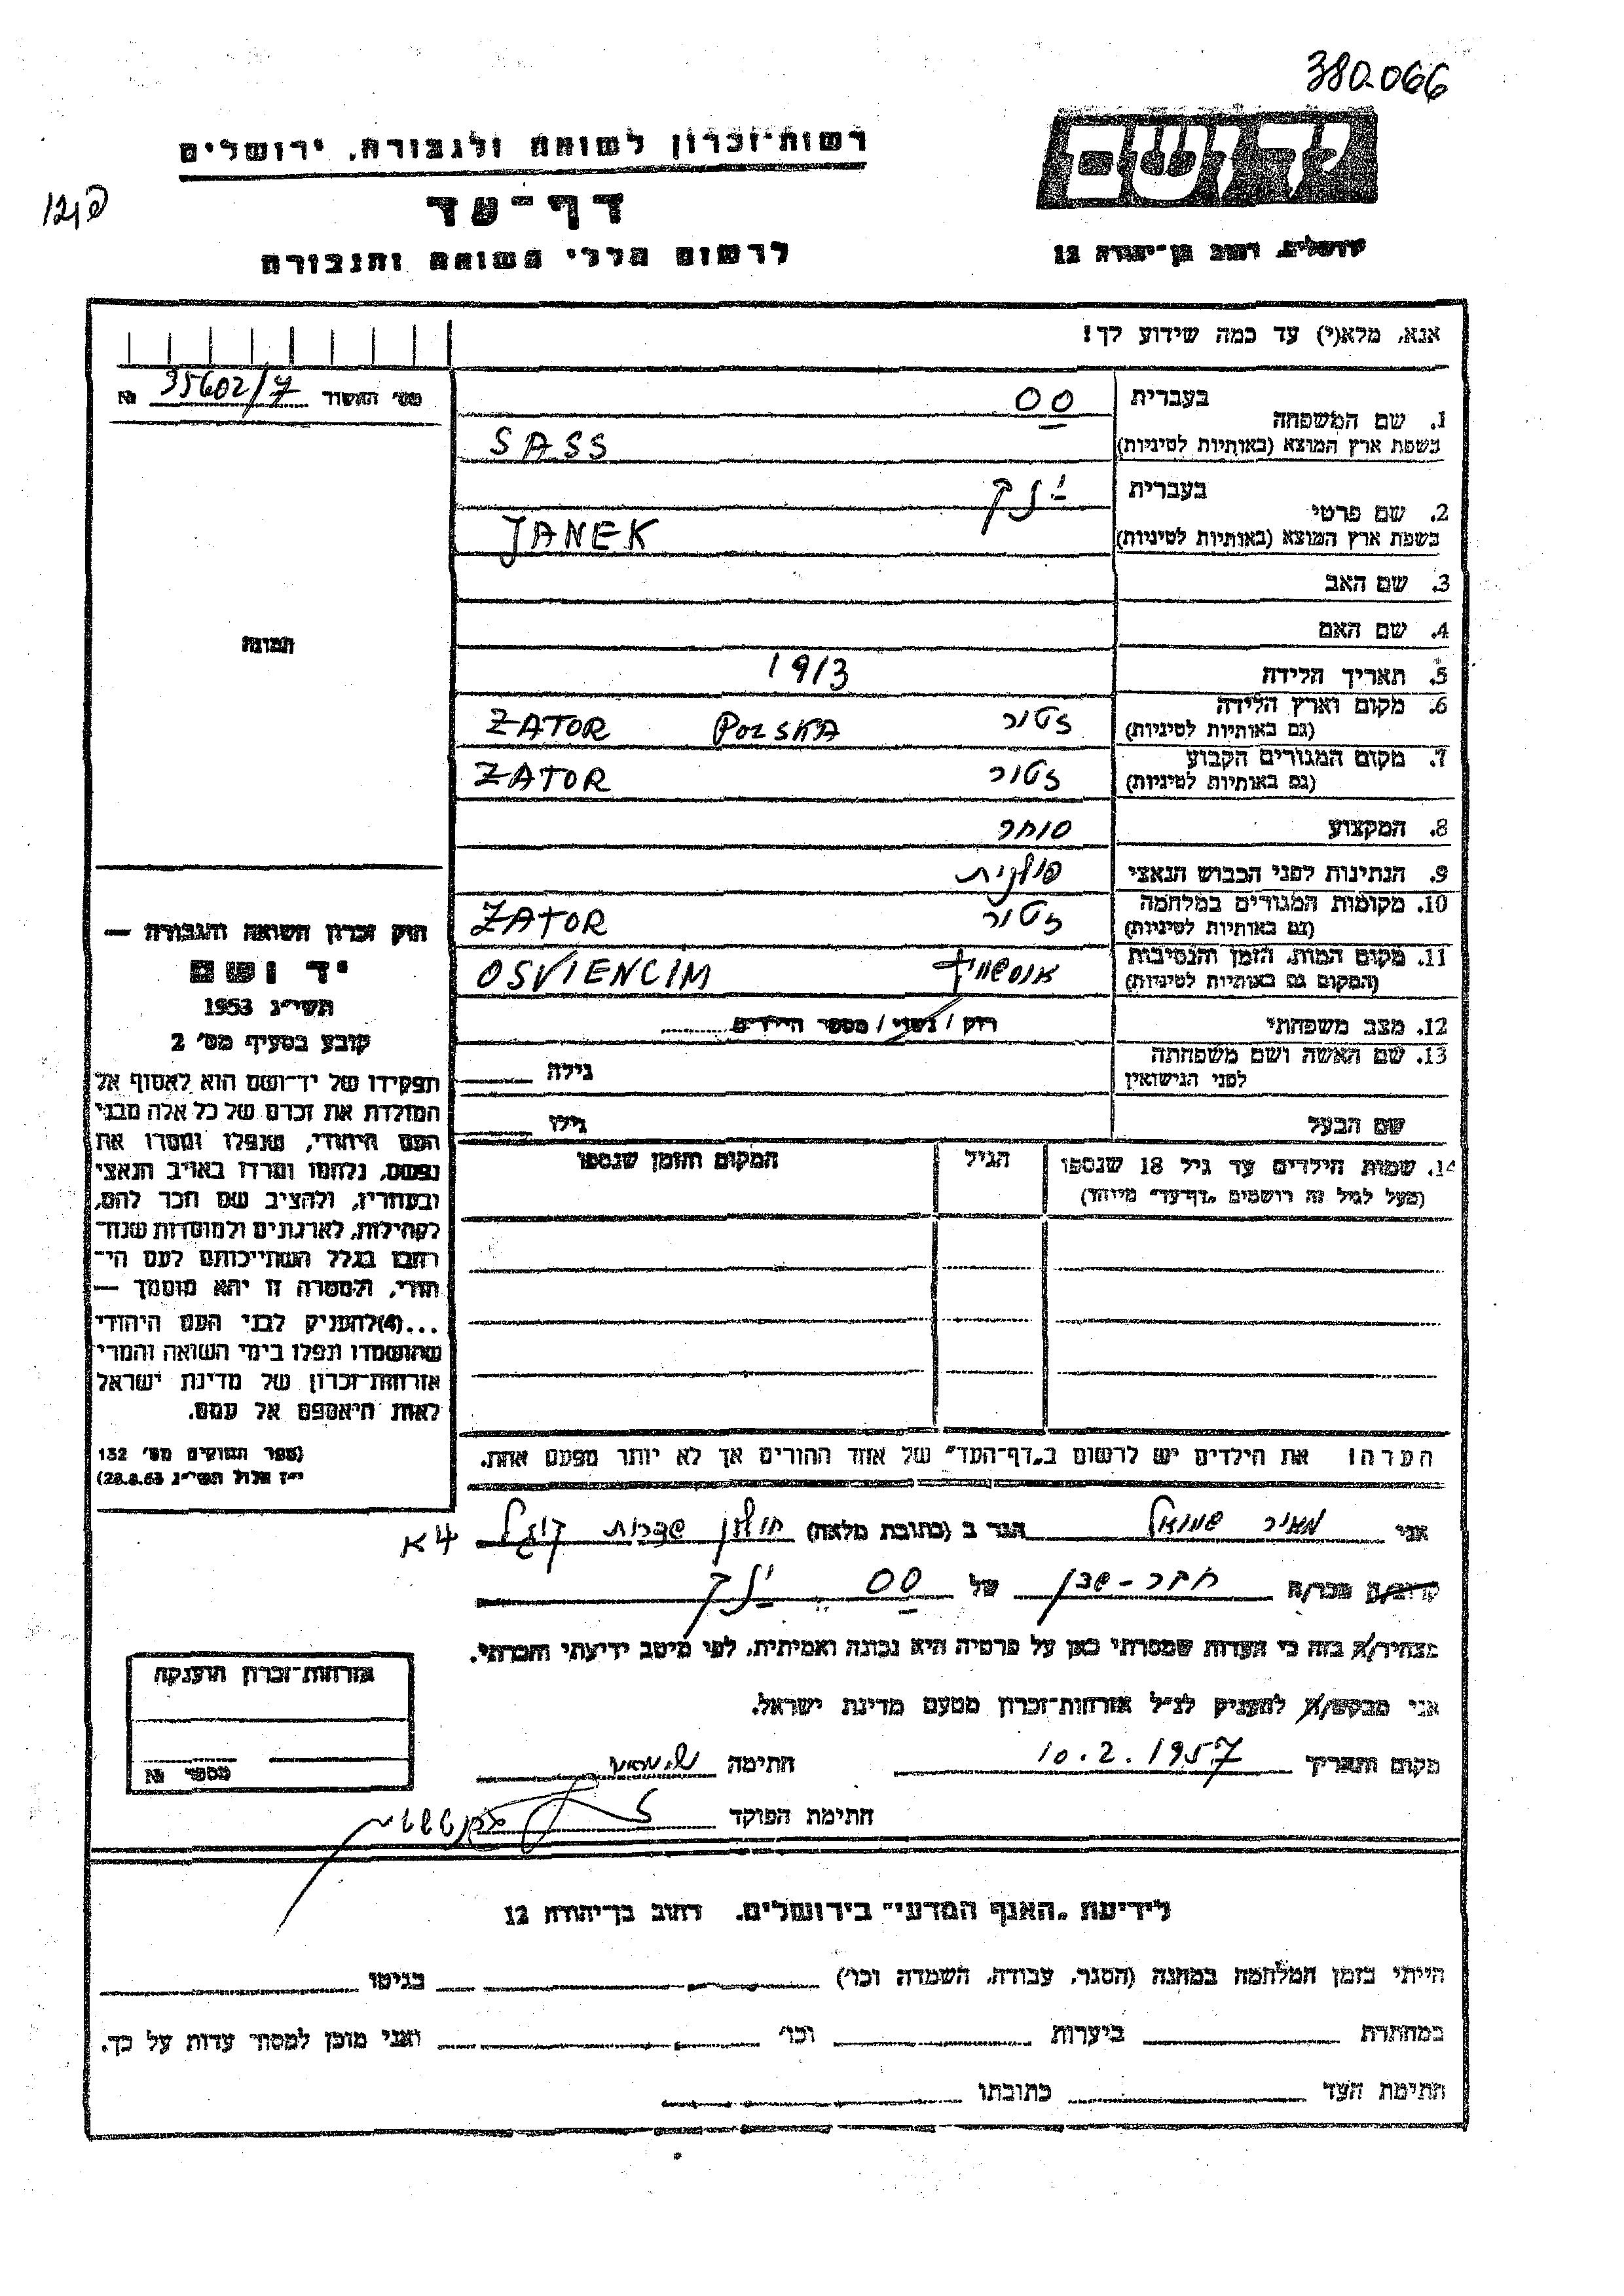 380.066
רשות־זכרון לשואה ולגבורה, ירושלים
יד ושם
דף־עד
לרשום חללי השואה והגבורה
ירושלים, רחוב בן־יהודה 12
אנא, מלא(י) עד כמה שידוע לך!
מס' האשור 35602/7 №
1. שם המשפחה
בעברית סס
בשפת ארץ המוצא (באותיות לטיניות) SASS
2. שם פרטי
בעברית ינק
בשפת ארץ המוצא (באותיות לטיניות) JANEK
3. שם האב
4. שם האם
5. תאריך הלידה 1913
6. מקום וארץ הלידה
(גם באותיות לטיניות) זטור POLSKA ZATOR
7. מקום המגורים הקבוע
(גם באותיות לטיניות) זטור ZATOR
8. המקצוע סוחר
9. הנתינות לפני הכבוש הנאצי פולנית
10. מקומות המגורים במלחמה
(גם באותיות לטיניות) זטור ZATOR
11. מקום המות, הזמן והנסיבות
(המקום גם באותיות לטיניות) אושויץ OSVIENCIM
12. מצב משפחתי רווק / נשוי / מספר הילדים
13. שם האשה ושם משפחתה
לפני הנישואין גילה
שם הבעל גילו
14. שמות הילדים עד גיל 18 שנספו הגיל המקום והזמן שנספו
(מעל לגיל זה רושמים „דף־עד" מיוחד)
הערה: את הילדים יש לרשום ב„דף־העד" של אחד ההורים אך לא יותר מפעם אחת.
תמונה
חוק זכרון השואה והגבורה —
יד ושם
תשי"ג 1953
קובע בסעיף מס' 2
תפקידו של יד־ושם הוא לאסוף אל
המולדת את זכרם של כל אלה מבני
העם היהודי, שנפלו ומסרו את
נפשם, נלחמו ומרדו באויב הנאצי
ובעוזריו, ולהציב שם וזכר להם,
לקהילות, לארגונים ולמוסדות שנח־
רבו בגלל השתייכותם לעם הי־
הודי, ולמטרה זו יהא מוסמך —
...(4)להעניק לבני העם היהודי
שהושמדו ונפלו בימי השואה והמרי
אזרחות־זכרון של מדינת ישראל
לאות היאספם אל עמם.
(ספר החוקים מס' 132
י"ז אלול תשי"ג 28.8.53)
אני מאיר שמואל הגר ב (כתובת מלאה) חולון שדרות קוגל 4א
קרוב/ה מכר/ה חבר-שכן של סס ינק
מצהיר/ה בזה כי העדות שמסרתי כאן על פרטיה היא נכונה ואמיתית, לפי מיטב ידיעתי והכרתי.
אני מבקש/ת להעניק לנ"ל אזרחות־זכרון מטעם מדינת ישראל.
מקום ותאריך 10.2.1957 חתימה
חתימת הפוקד
אזרחות־זכרון הוענקה
מספר №
לידיעת „האגף המדעי" בירושלים. רחוב בן־יהודה 12
הייתי בזמן המלחמה במחנה (הסגר, עבודה, השמדה וכו') בגיטו
במחתרת ביערות וכו' ואני מוכן למסור עדות על כך.
חתימת העד כתובתו